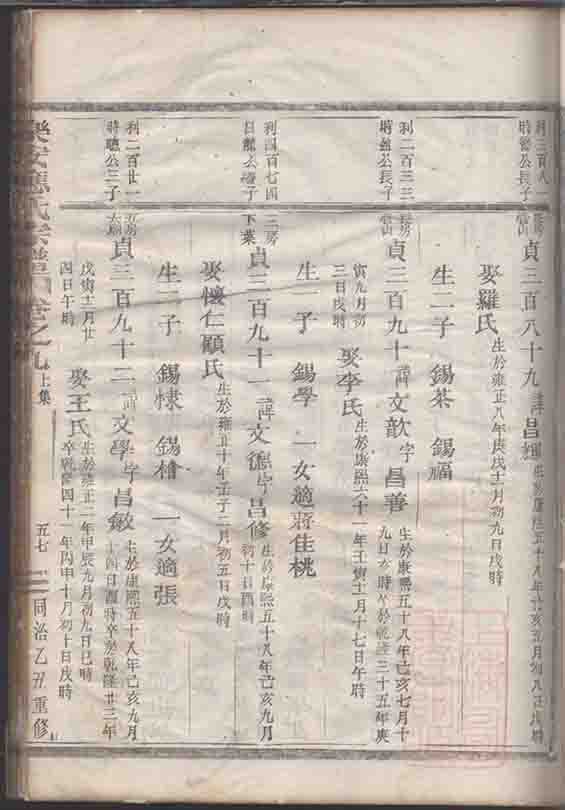 利三百八一
時
公長子
長房
貞三百八十九
諱
昌
生於康熙五十八年己亥五月初八日戌時
娶羅氏
生於雍正八年庚戌十一月初九日戌時
生二子 錫恭 錫福
利二百三三
時
公長子
長房
貞三百九十
諱
文歆
字
昌善
生於康熙五十八年己亥七月十
九日亥時卒於乾隆三十五年庚
寅九月初
三日戌時
娶李氏
生於康熙六十一年壬寅十一月十七日午時
生一子 錫學 一女適蔣佳桃
利四百七四
日龍公
子
二房
下葉
貞三百九十一
諱
文德
字
昌修
生於康熙五十八年己亥九月
初十日酉時
娶懷仁顧氏
生於雍正十年壬子二月初五日戌時
生二子 錫棣 錫檜 一女適張
利二百廿一
時聰公三子
五房
貞三百九十二
諱
文學
字
昌敏
生於康熙五十八年己亥九月
十四日
時卒於乾隆廿三年
戊寅十二月廿
四日午時
娶王氏
生於雍正二年甲辰九月初九日巳時
卒乾隆四十一年丙申十月初十日戌時
樂安應氏宗譜
卷之九
上集
五七
同治乙丑重修